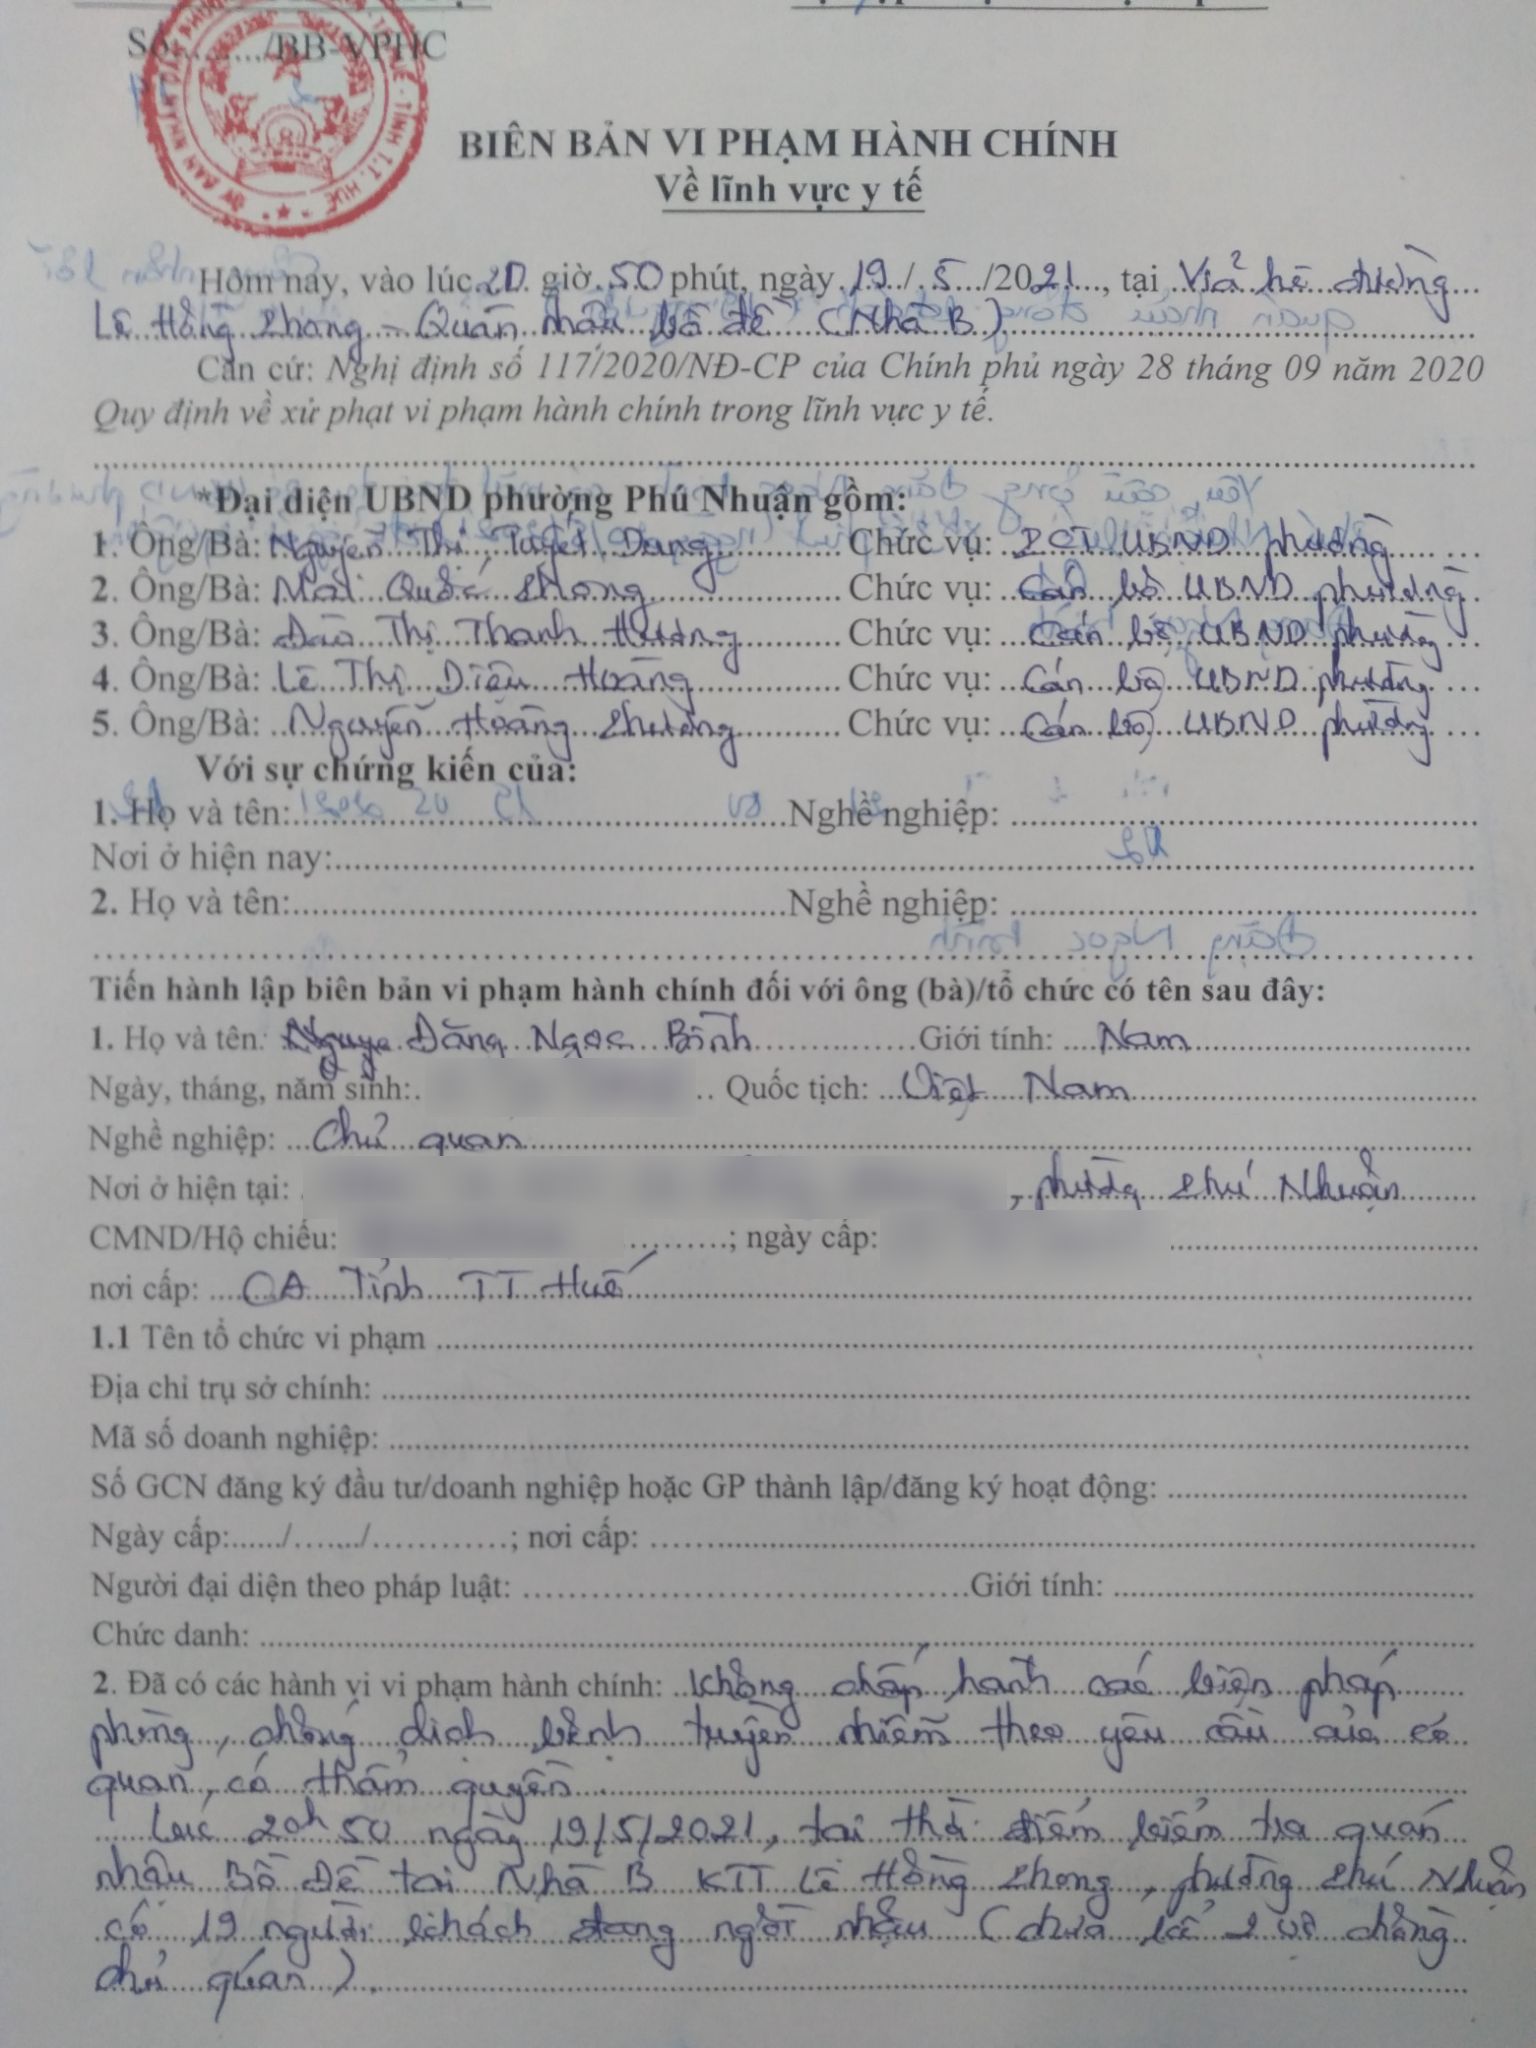 Số:........./BB-VPHC
BIÊN BẢN VI PHẠM HÀNH CHÍNH
Về lĩnh vực y tế
Hôm nay, vào lúc 20 giờ 50 phút, ngày 19/5/2021, tại Vỉa hè đường
Lê Hồng Phong - Quán nhậu bồ đề (Nhà B)
Căn cứ: Nghị định số 117/2020/NĐ-CP của Chính phủ ngày 28 tháng 09 năm 2020
Quy định về xử phạt vi phạm hành chính trong lĩnh vực y tế.
*Đại diện UBND phường Phú Nhuận gồm:
1. Ông/Bà: Nguyễn Thị Tuyết Dang Chức vụ: PCT UBND phường
2. Ông/Bà: Mai Quốc Phong Chức vụ: Cán bộ UBND phường
3. Ông/Bà: Đào Thị Thanh Hương Chức vụ: Cán bộ UBND phường
4. Ông/Bà: Lê Thị Diệu Hoàng Chức vụ: Cán bộ UBND phường
5. Ông/Bà: Nguyễn Hoàng Phương Chức vụ: Cán bộ UBND phường
Với sự chứng kiến của:
1. Họ và tên: Nghề nghiệp:
Nơi ở hiện nay:
2. Họ và tên: Nghề nghiệp:
Tiến hành lập biên bản vi phạm hành chính đối với ông (bà)/tổ chức có tên sau đây:
1. Họ và tên: Đặng Ngọc Bình Giới tính: Nam
Ngày, tháng, năm sinh: Quốc tịch: Việt Nam
Nghề nghiệp: Chủ quan
Nơi ở hiện tại: , phường Phú Nhuận
CMND/Hộ chiếu: ; ngày cấp:
nơi cấp: CA Tỉnh TT Huế
1.1 Tên tổ chức vi phạm
Địa chỉ trụ sở chính:
Mã số doanh nghiệp:
Số GCN đăng ký đầu tư/doanh nghiệp hoặc GP thành lập/đăng ký hoạt động:
Ngày cấp:....../......./............; nơi cấp:
Người đại diện theo pháp luật: Giới tính:
Chức danh:
2. Đã có các hành vi vi phạm hành chính: Không chấp hành các biện pháp
phòng, chống dịch bệnh truyền nhiễm theo yêu cầu của cơ
quan, có thẩm quyền.
Lúc 20h50 ngày 19/5/2021, tại thời điểm kiểm tra quán
nhậu Bồ Đề tại Nhà B KTT Lê Hồng Phong, phường Phú Nhuận
có 19 người khách đang ngồi nhậu (chưa kể 2 vợ chồng
chủ quán).